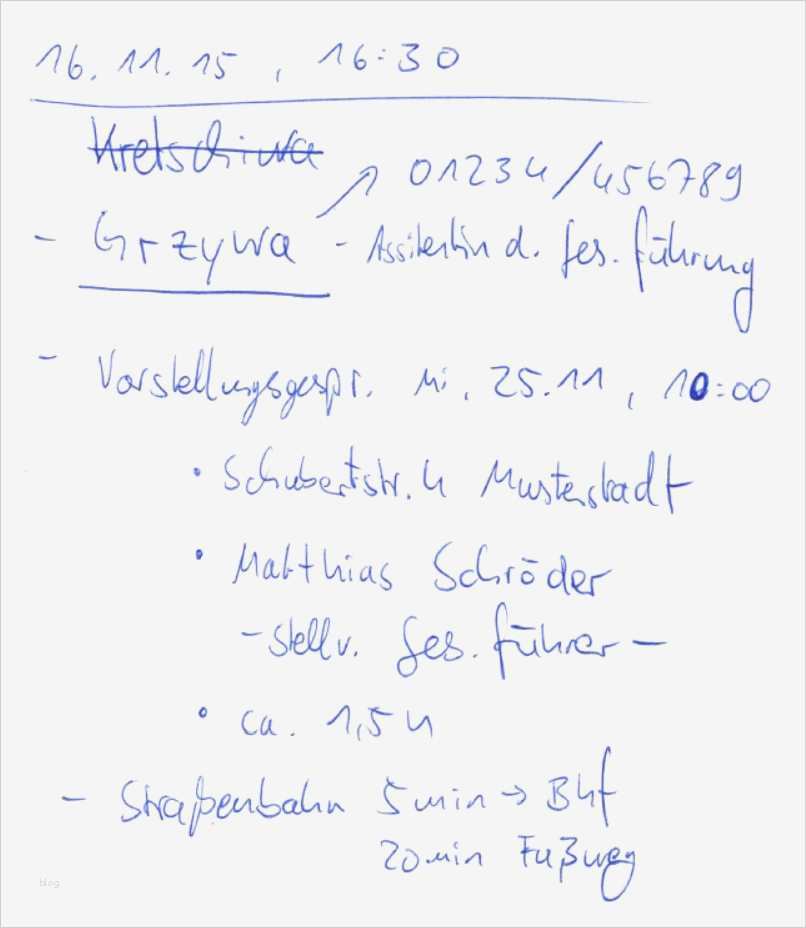 16.11.15, 16:30
Kretschiwa
↗ 01234/456789
- Grzywa - Assitentin d. Ges.führung
- Vorstellungsgespr. Mi, 25.11, 10:00
• Schubertstr. 4 Musterstadt
• Matthias Schröder
- Stellv. Ges.führer -
• ca. 1,5 h
- Straßenbahn 5 min → Bhf
20 min Fußweg
blog